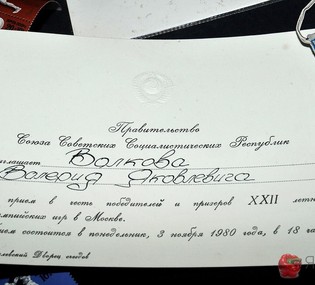 Правительство
Союза Советских Социалистических Республик
иглашает Волкова
Валерия Яковлевича
прием в честь победителей и призеров XXII летн
мпийских игр в Москве.
ием состоится в понедельник, 3 ноября 1980 года, в 18 ча
млевский Дворец съездов